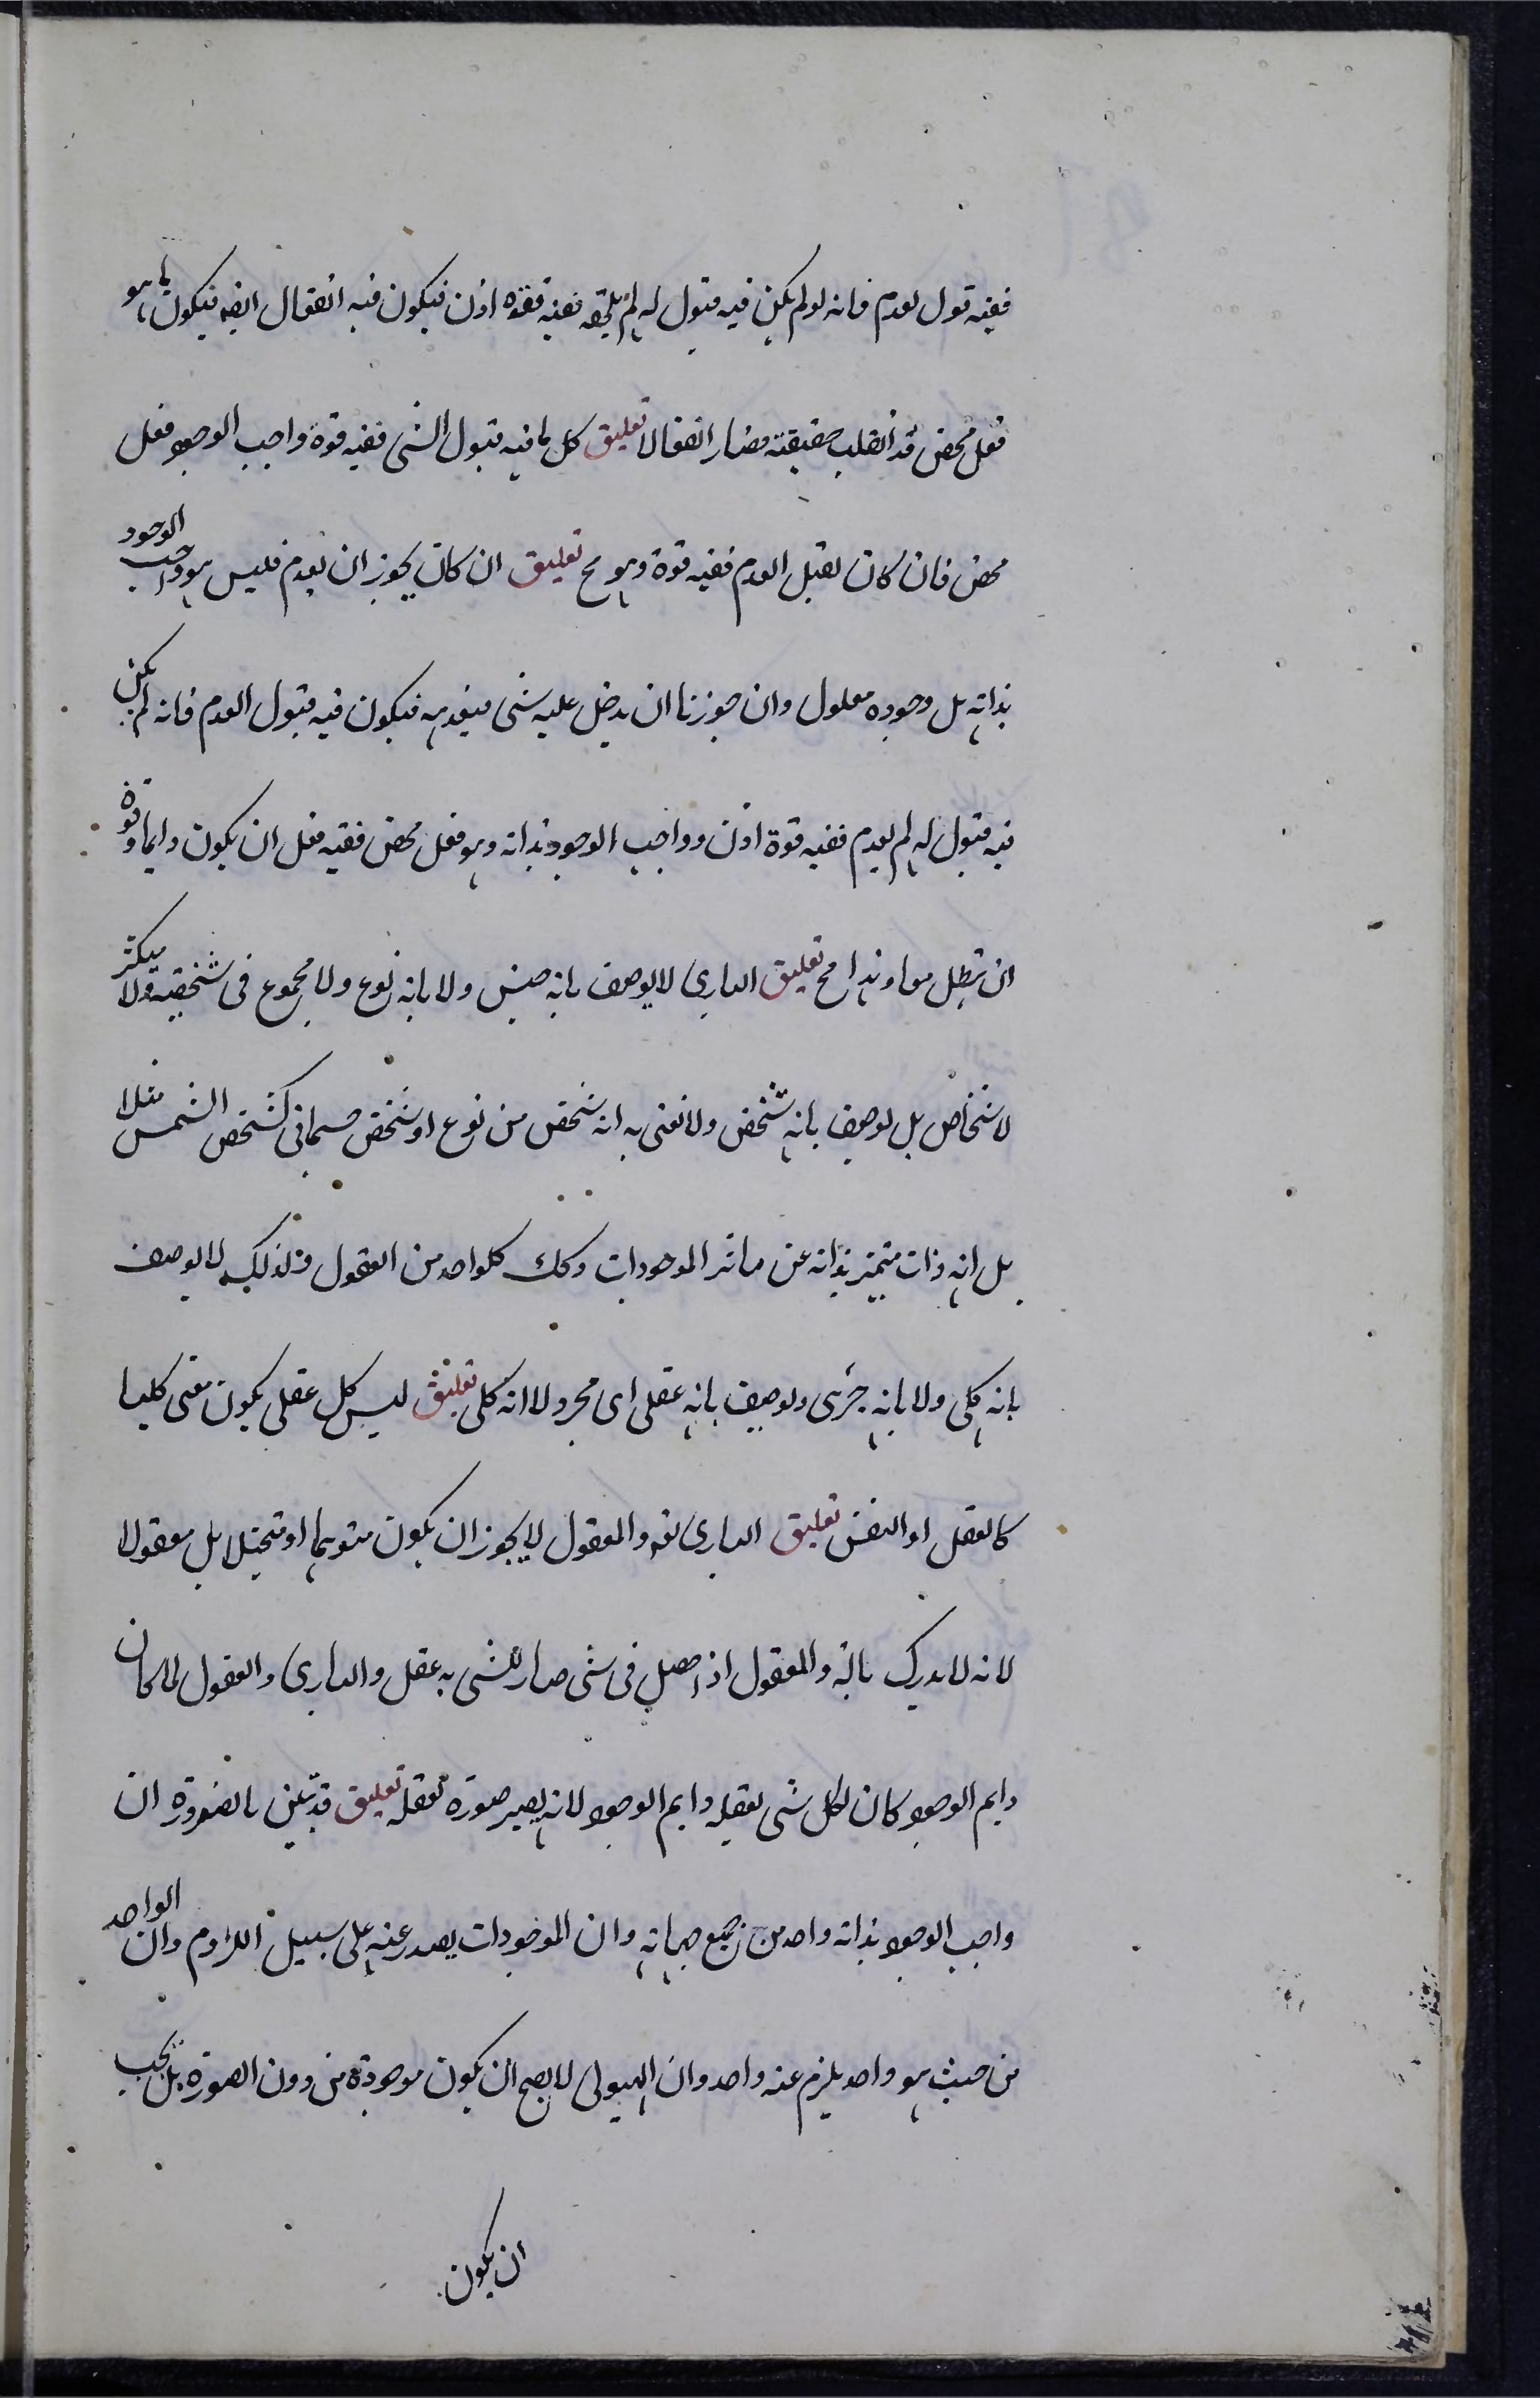 ففيه قبول لعدم فانه لو لم يكن فيه قبول له لم يلحقه ففيه قوة اذن فيكون فيه انفعال ايضه فيكون ما هو
فعل محض قد انقلب حقيقته فصار انفعالا تعليق كل ما فيه قبول الشى ففيه قوة واجب الوجود فعل
محض فان كان يقبل العدم ففيه قوة وهو مح تعليق ان كان يجوز ان يعدم فليس هو واجب الوجود
بذاته بل وجوده معلول وان جوزنا ان يدخل عليه شى فيعدمه فيكون فيه قبول العدم فانه لم يكن
فيه قبول له لم يعدم ففيه قوة اذن وواجب الوجود بذاته وهو فعل محض ففيه فعل ان يكون دايما وقوة
ان يبطل معا وهذا مح تعليق البارى لا يوصف بانه جنس ولا بانه نوع ولا مجموع فى شخصية ولا متكثر
لاشخاص بل يوصف بانه شخص ولا نعنى به انه شخص من نوع او شخص جسمانى كشخص الشمس مثلا
بل انه ذات متميز بذاته عن سائر الموجودات وكك كلواحد من العقول ولذلك لا يوصف
بانه كلى ولا بانه جزئى ويوصف بانه عقلى اى مجرد لا انه كلى تعليق ليس كل عقلى يكون معنى كليا
كالعقل او النفس تعليق البارى تعه والمعقول لا يجوز ان يكون متوهما او متخيلا بل معقولا
لانه لا يدرك بالة والمعقول اذا حصل فى شى صار للشى به عقل والبارى والعقول لما كان
دايم الوجود كان لكل شى يعقله دايم الوجود لانه يصير صورة تعقله تعليق قد تبين بالضرورة ان
واجب الوجود بذاته واحد من جميع جهاته وان الموجودات يصدر عنه على سبيل اللزوم وان الواحد
من حيث هو واحد يلزم عنه واحد وان الهيولى لا يصح ان يكون موجودة من دون الصورة بل يجب
ان يكون